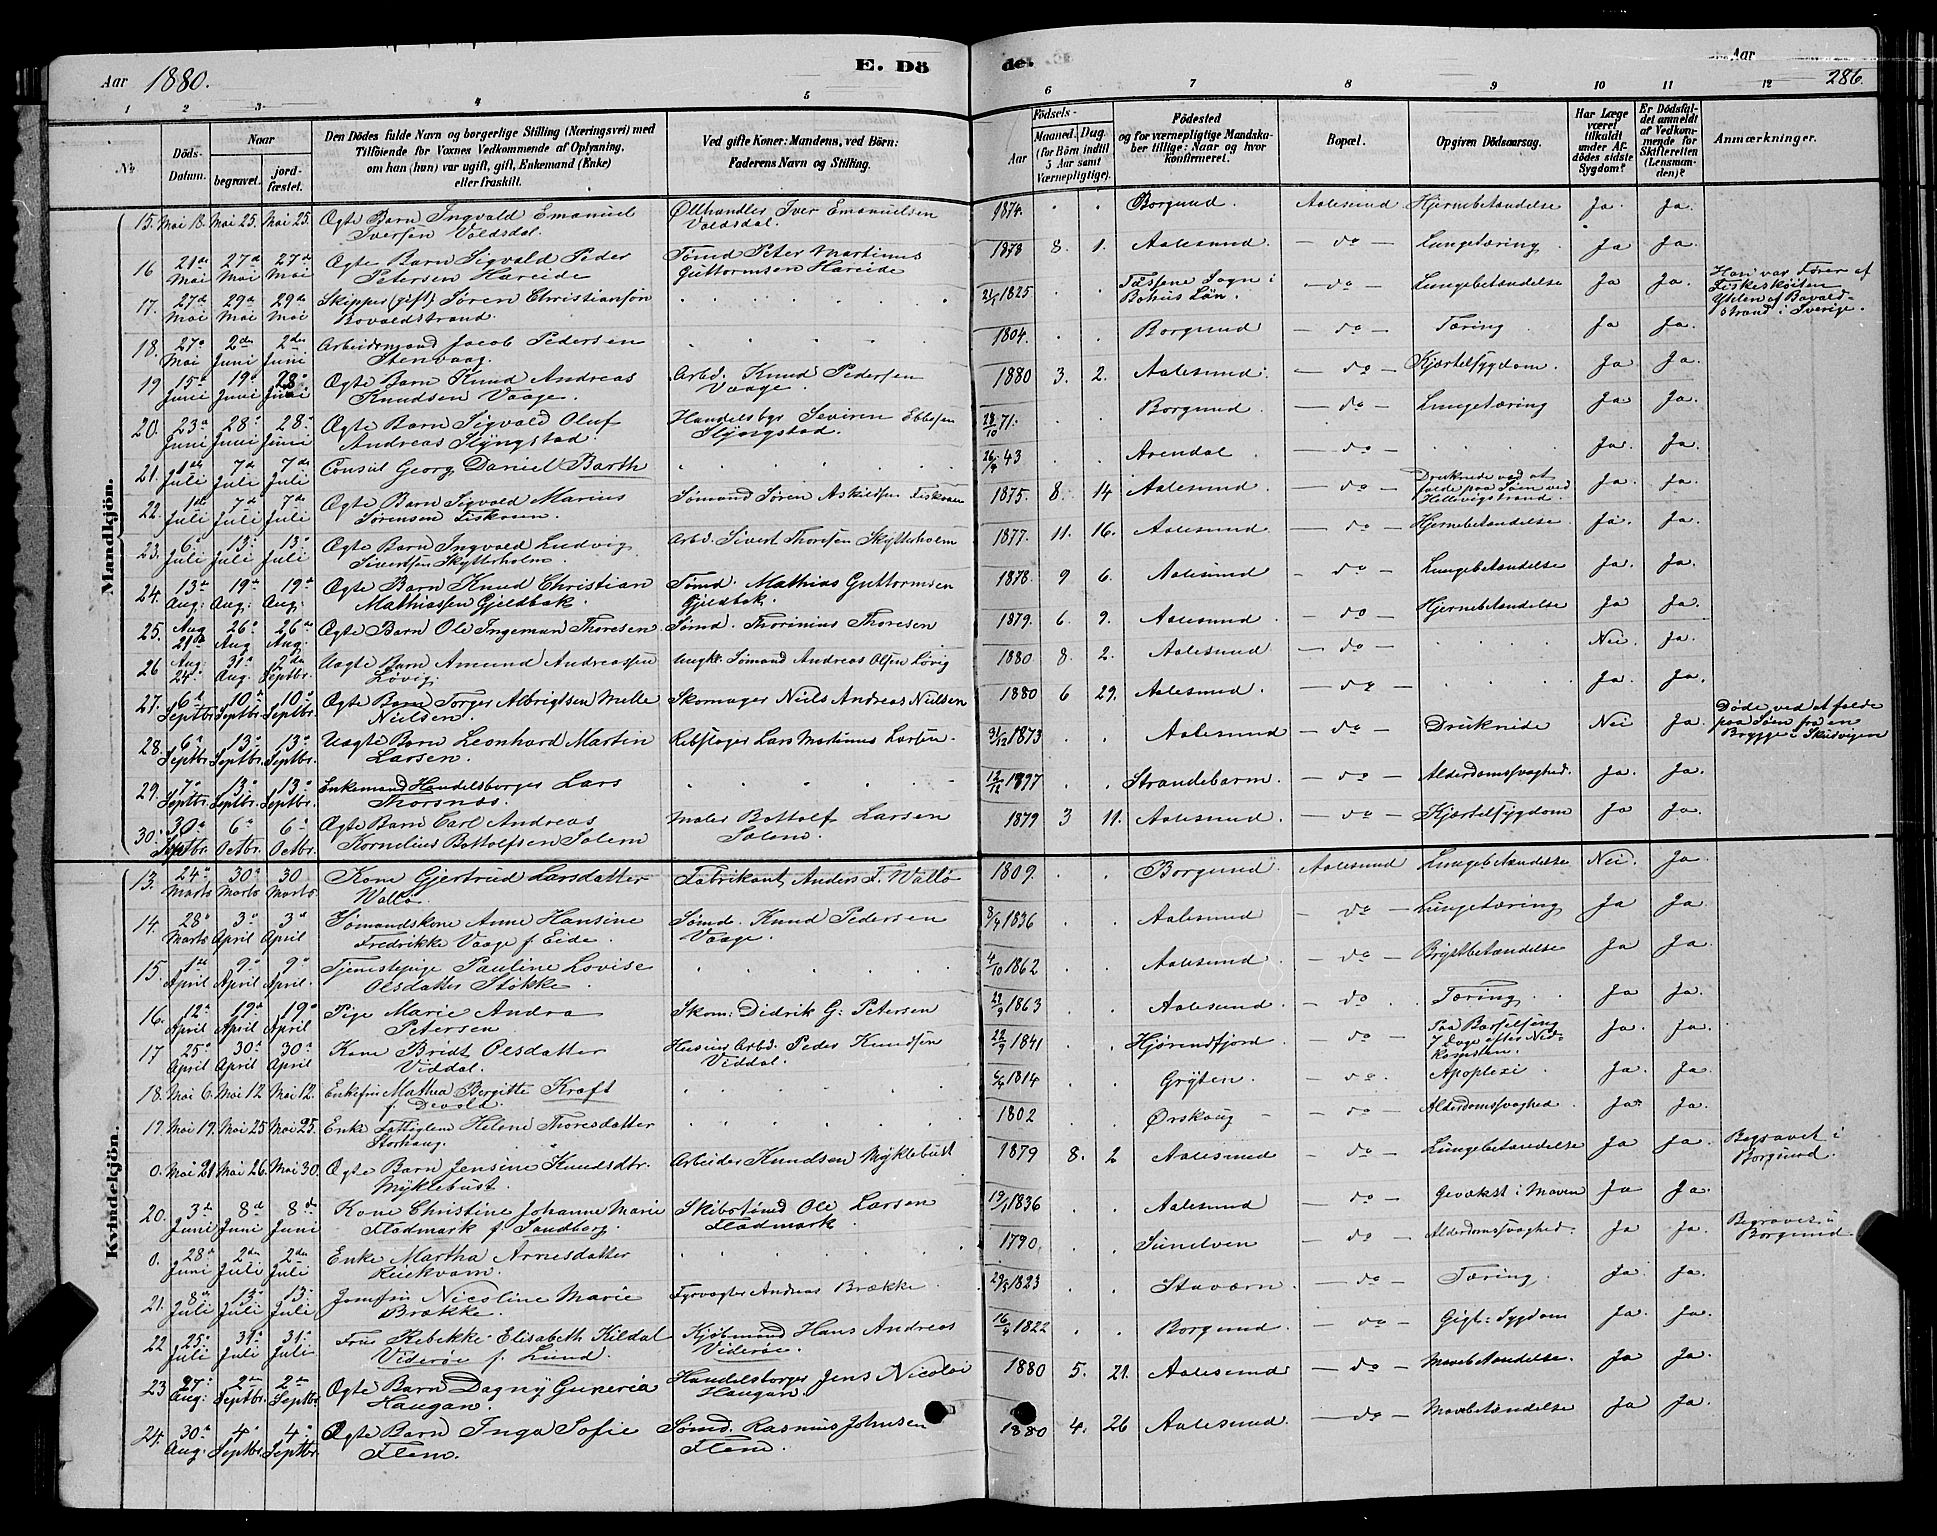 Aar 1880.
E. Dö
de.
Aar
286.
1 2 3 4 5 6 7 8 9 10 11 12
No.
Döds-Datum.
Naar
begravet.
jordfæstet.
Den Dödes fulde Navn og borgerlige Stilling (Næringsvei) med Tilföiende for Voxnes Vedkommende af Oplysning, om han (hun) var ugift, gift, Enkemand (Enke) eller fraskilt.
Ved gifte Koner: Mandens, ved Börn: Faderens Navn og Stilling.
Födsels-
Aar
Maaned. Dag.
(for Börn indtil 5 Aar samt Værnepligtige).
Födested og for værnepligtige Mandskaber tillige: Naar og hvor konfirmeret.
Bopæl.
Opgiven Dödsaarsag.
Har Læge været tilkaldt under Afdödes sidste Sygdom?
Er Dödsfaldet anmeldt af Vedkommende for Skifteretten (Lensmanden)?
Anmærkninger.
Mandkjön.
15. Mai 18. Mai 25. Mai 25. Ægte Barn Ingvald Emanuel Iversen Valdsdal. Ølhandler Iver Emanuelsen Valdsdal. 1874. Borgund. Aalesund Hjernebetændelse Ja. Ja.
16 21de Mai 27de Mai 27de Mai Ægte Barn Sigvald Peder Petersen Hareide Sømd Peter Martinus Guttormsen Hareide 1878 8. 1. Aalesund. do Lungetæring. Ja Ja.
17. 27de Mai 29de Mai 29de Mai Skipper (gift) Søren Christiansøn Bovaldstrand. 1825 Sogn i Bohus Län. do Lungebetændelse Ja Ja. Han var Fører af Fiskeskøiten af Bovaldstrand i Sverige.
18. 27de Mai 2den Juni 2den Juni Arbeidsmand Jacob Pedersen Stenvaag. 1804. Borgund do Tæring. Ja Ja.
19 15de Juni 19de Juni 28 Juni Ægte Barn Knud Andreas Knudsen Vaage. Arbd. Knud Pedersen Vaage. 1880 3. 2. Aalesund. do Kjertelsygdom. Ja Ja.
20. 23de Juni 28de Juni 28de Juni Ægte Barn Sigvald Oluf Andreas Slyngstad. Handelsbgr Severen Ebbesen Slyngstad. 28/10 71. Borgund. do Lungetæring Ja Ja.
21. 1ste Juli 7de Juli 7de Juli Consul Georg Daniel Barth 43 Arendal do Ja. Ja.
22. 1ste Juli 7de Juli 7de Juli Ægte Barn Sigvald Marius Sørensen Fiskeen. Sømand Søren Askildsen 1875. 8. 14 Aalesund do Druknede ved at falde paa Søen ved Hellevigstrand. Ja. Ja.
23. 6te Juli 13de Juli 13de Juli Ægte Barn Ingvald Ludvig Sivertsen Skytterholm. Arbd. Sivert Thoresen Skytterholm 1877. 11. 16. Aalesund do Hjernebetændelse. Ja. Ja.
24. 13de Aug: 19de Aug: 19de Aug. Ægte Barn Knud Christian Mathiassen Gjeldbak. Sømd. Mathias Guttormsen Gjeldbak. 1878. 9 6. Aalesund do Lungebetændelse Ja. Ja.
25. Aug 21de 26de Aug 26de Aug. Ægte Barn Ole Ingeman Thoresen. Sømd. Thorinius Thoresen 1879. 6. 9. Aalesund. do Hjernebetændelse Ja Ja.
26 Aug: 24de 31te Aug. 2den Septbr. Uægte Barn Amund Andreassen Løvig. Ungkr. Sømand Andreas Olsen Løvig 1880 8. 2. Aalesund do Nei. Ja.
27. 6te Septbr. 10de Septbr. 10de Septbr. Ægte Barn Torger Albrigtsen Melle Nielsen. Skomager Niels Andreas Nielsen 1880 6 29. Aalesund. do Ja. Ja.
28. 6te Septbr. 13de Septbr. 13de Septbr. Uægte Barn Leonhard Martin Larsen. Rebslager Lars Martinus Larsen. 31/12 1873 Aalesund do Druknede Nei Ja. Døde ved at falde paa Søen fra en Brygge i Skudvigen
29. 7de Septbr. 13de Septbr. 13de Septbr. Enkemand Handelsborger Lars Thorsnæs. 1897 Strandebarm. do Alderdomssvaghed. Ja. Ja.
30. 30te Septbr. 6te Octbr. 6te Octbr. Ægte Barn Carl Andreas Kornelius Bottolfsen Solem Maler Bottolf Larsen Solem. 1879 3 11. Aalesund. do Kjertelsygdom Ja Ja.
Kvindekjön.
13. 24de Marts 30te Marts 30 Marts Kone Gjertrud Larsdatter Wallø. Fabrikant Anders F. Wallø 1809. Borgund. Aalesund Lungebetændelse Nei. Ja.
14. 28de Marts 3de April 3de April Sømandskone Anne Hansine Fredrikke Vaage f. Eide. Sømd. Knud Pedersen Vaage. 8/4 1836 Aalesund do Lungetæring Ja Ja.
15 1ste April 9de April. 9de April. Tjenestepige Pauline Lovise Olsdatter Støkke. 4/10 1862 Aalesund. do Brystbetændelse Ja Ja.
16. 12te April 19de April 19de April Pige Marie Andra Petersen. Skom: Didrik G. Petersen 1863 Aalesund. do Tæring. Ja Ja
17 25de April 30te April 30te April Kone Bridt Olsdatter Viddal. Husier Arbd. Peder Knudsen Viddal. 22/9 1841 Hjørendfjord do Paa Barselseng 7 Dage efter Nedkomsten. Ja. Ja.
18. Mai 6. Mai 12 Mai 12. Enkefru Mathea Bergitte Kraft f. Devold. 1814 Grytten. do Apoplexi Ja. Ja.
19. Mai 19. Mai 25 Mai 25. Enke Fattiglem Helene Thoresdatter Storhaug. 1802 Ørskoug do Alderdomssvaghed Ja. Ja.
0. Mai 21 Mai 26. Mai 30. Ægte Barn Jensine Knudsdtr. Myklebust. Arbeider Knudsen Myklebust 1879 8. 2 Aalesund do Lungebetændelse Ja Ja Begravet i Borgund.
20. 3de Juni 8de Juni 8de Juni Kone Christine Johanne Marie Fladmark f. Sandberg. Skibstømd Ole Larsen Fladmark. 1836 Aalesund do Gevækst i Maven Ja Ja.
0. 28de Juni 2den Juli 2den Juli Enke Martha Arnesdatter 1790. Sunelven do Alderdomssvaghed. Ja Ja. Begravet i Borgund
21. 8de Juli 13de Juli 13. Juli Jomfru Nicoline Marie Brække. Fyrvogter Andreas Brække. 1823 Staværn. do Tæring. Ja Ja.
22 25de Juli 31te Juli 31te Juli Frue Rebekke Elisabeth Kildal Viderøe f. Lund. Kjøbmand Hans Andreas Viderøe. 16/4 1822 Borgund do Gigt-Sygdom Ja Ja.
23 27de Aug: 2den Septbr. 2den Septbr. Ægte Barn Dagny Haugan. Handelsborger Jens Nicolai Haugan. 1880 5. 21. Aalesund do Mavebetændelse. Ja Ja.
24. 30te Aug: 4de Septbr. 4de Septbr. Ægte Barn Inga Sofie Flem. Sømd. Rasmus Johnsen Flem. 1880 4. 26 Aalesund. do Mavebetændelse Ja Ja.